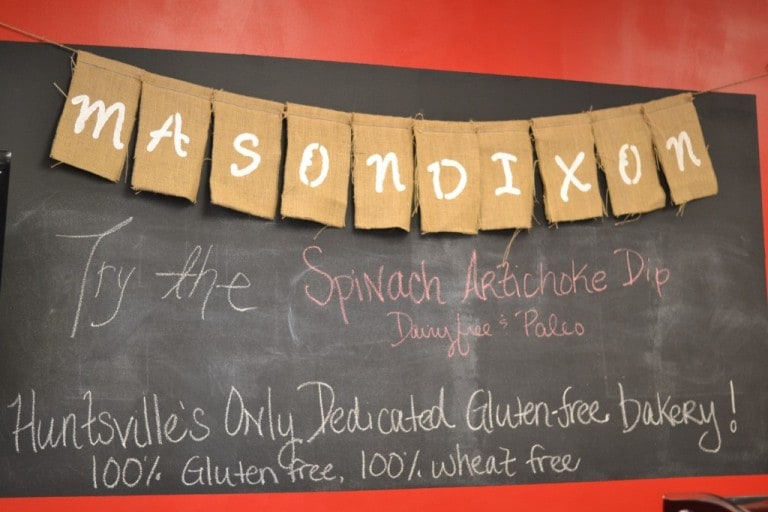 MASONDIXON
Try the Spinach Artichoke Dip
Dairyfree & Paleo
Huntsville's Only Dedicated Gluten-free bakery!
100% Gluten free, 100% wheat free